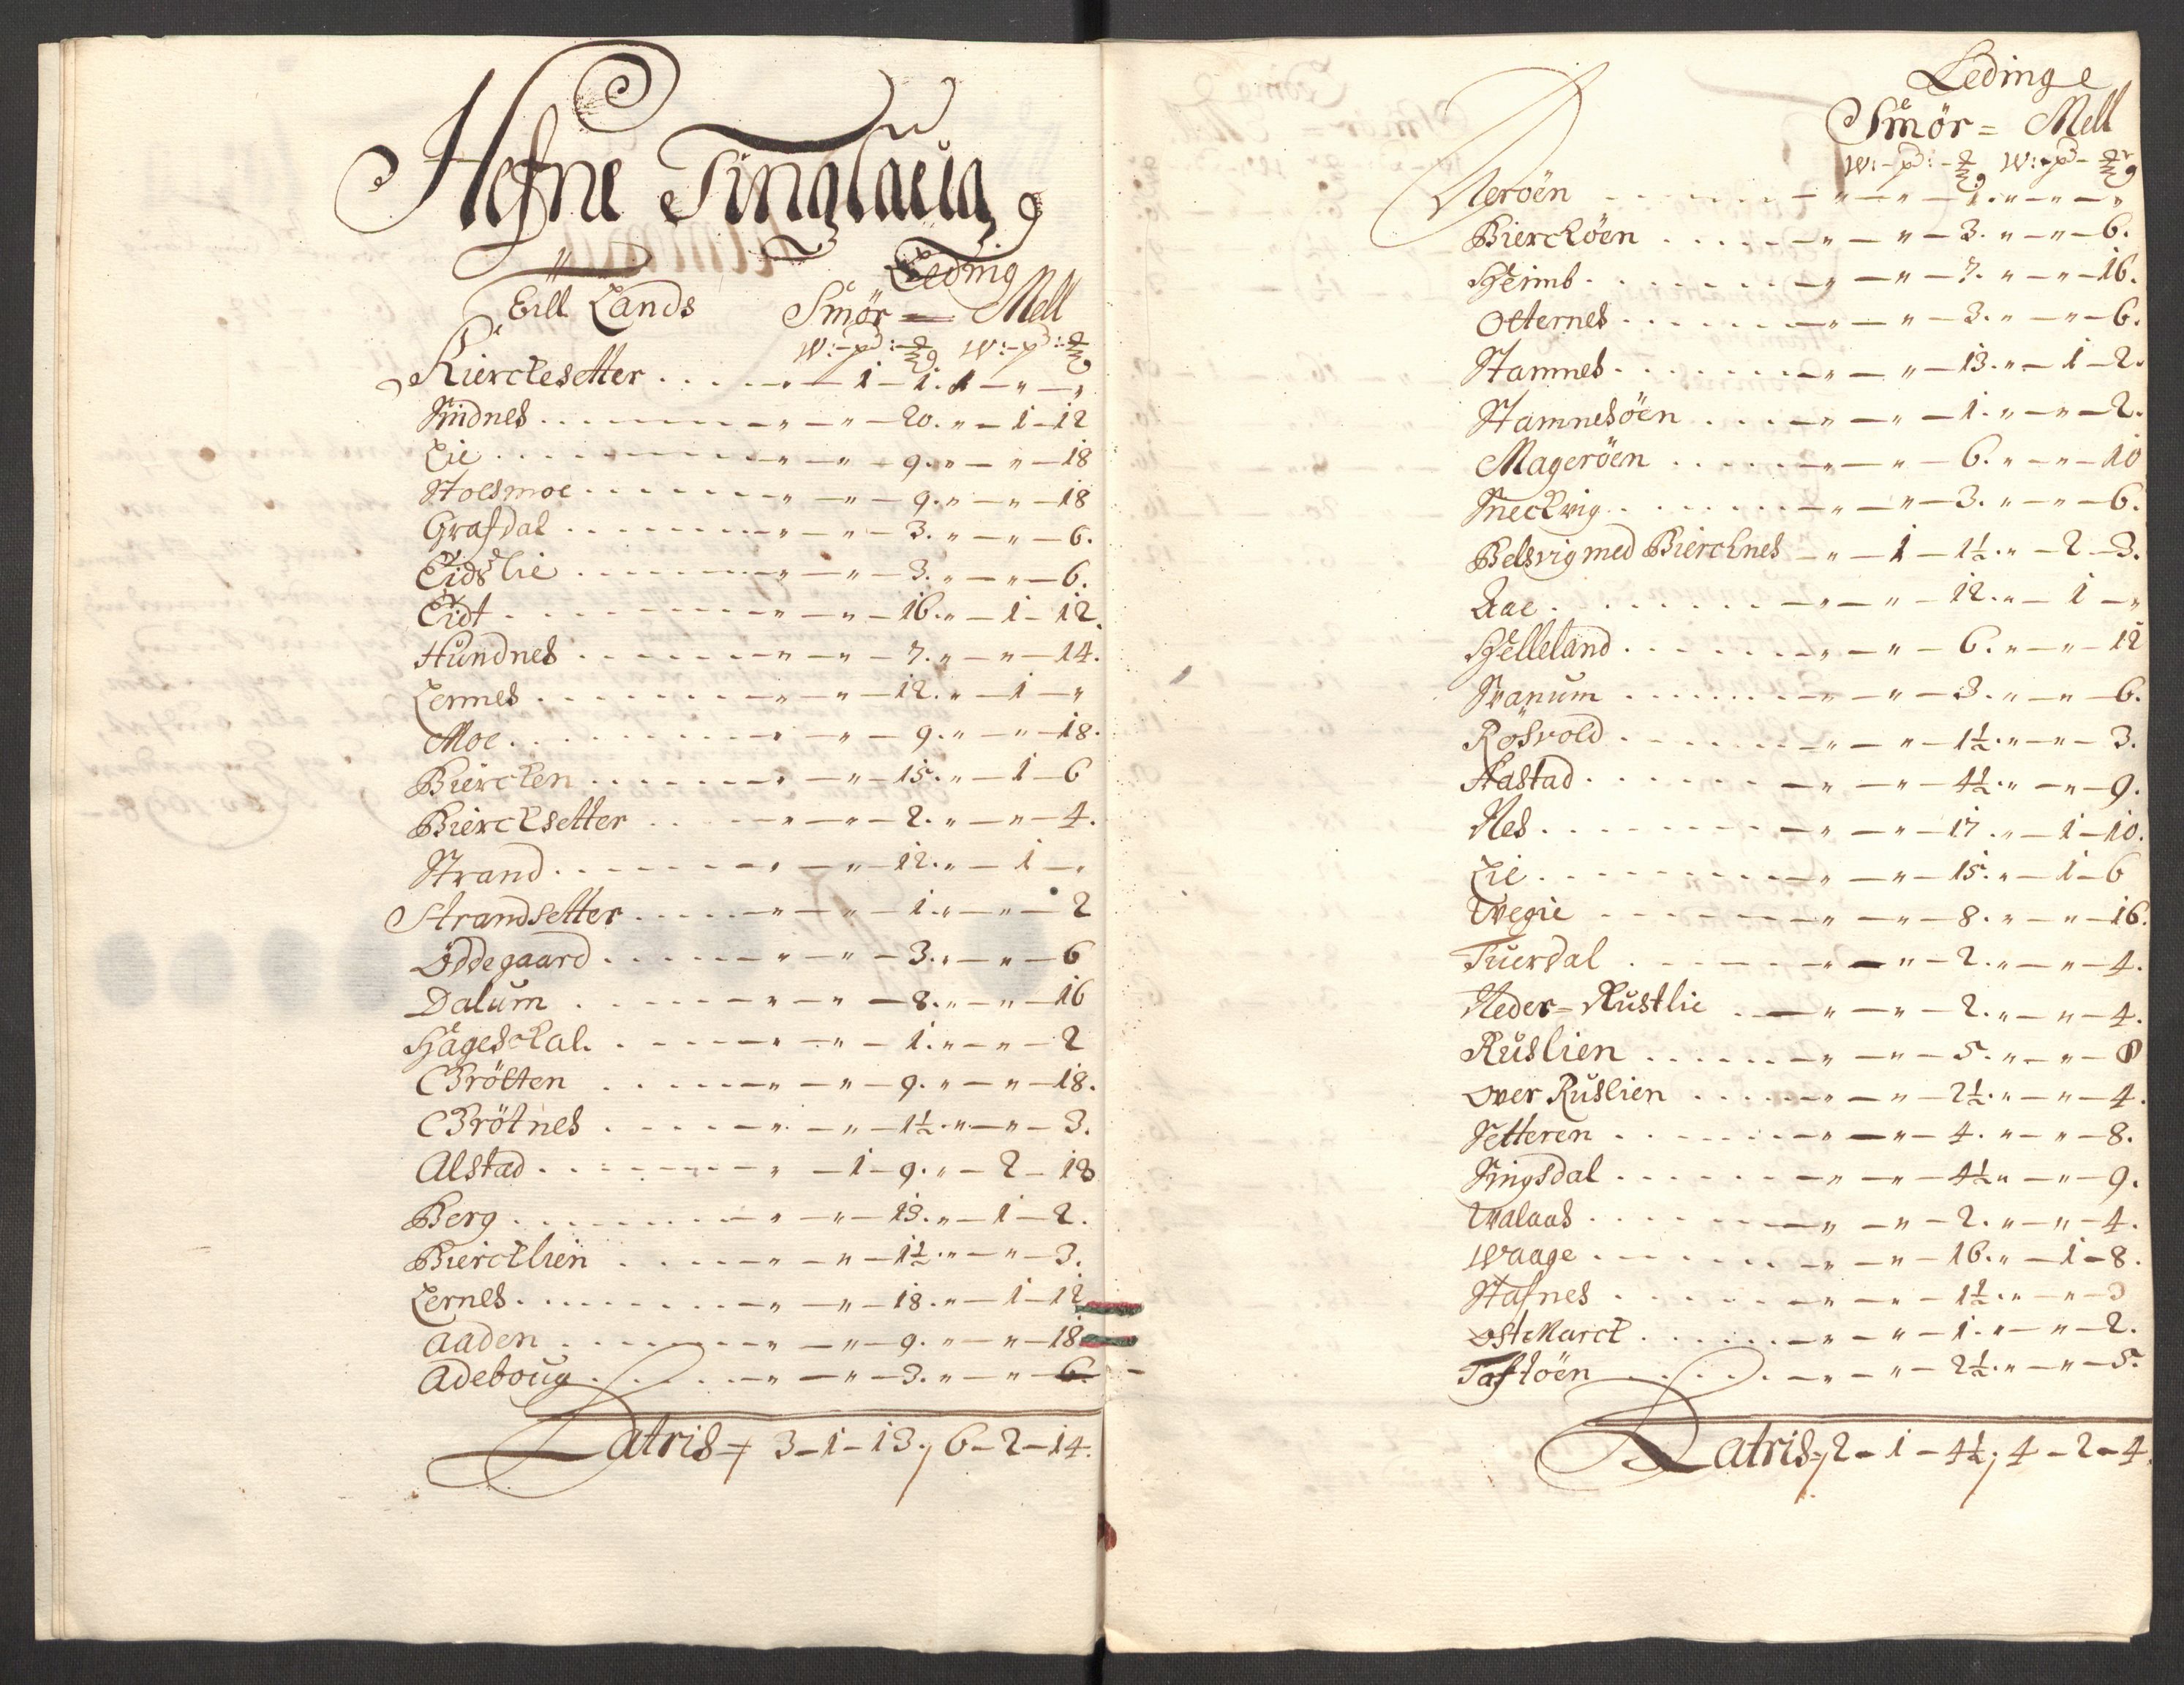 Hefne Tinglaug
Leding
Till Lands Smör = Mell
W: - pd: - W: - pd:
Kierckesetter . . . . . - „ - 1 - 1. 1 - „ - „
Snidnes . . . . „ - „ - 20. „ - 1 - 12
Lie . . . . „ - „ - 9. „ - „ - 18
Stolsmoe . . . . „ - „ - 9. „ - „ - 18
Grafdal . . . . „ - „ - 3. „ - „ - 6.
Eidslie . . . . „ - „ - 3. „ - „ - 6.
Eidt . . . . „ - „ - 16. „ - 1 - 12.
Hundnes . . . . „ - „ - 7. „ - „ - 14.
Lernes . . . . „ - „ - 12. „ - 1 - „
Moe . . . . „ - „ - 9. „ - „ - 18.
Biercken . . . . „ - „ - 15. „ - 1 - 6
Biercksetter . . . . „ - „ - 2. „ - „ - 4.
Strand . . . . „ - „ - 12. „ - 1 - „
Strandsetter . . . . „ - „ - 1. „ - „ - 2
Öddegaard . . . . „ - „ - 3. „ - „ - 6
Dalum . . . . „ - „ - 8. „ - „ - 16
Hageskal . . . . „ - „ - 1. „ - „ - 2
Grötten . . . . „ - „ - 9. „ - „ - 18.
Grötnes . . . . „ - „ - 1½. „ - „ - 3.
Alstad . . . . „ - 1 - 9. „ - 2 - 18
Berg . . . . „ - „ - 13. „ - 1 - 2.
Biercklien . . . . „ - „ - 1½. „ - „ - 3.
Lernes . . . . „ - „ - 18. „ - 1 - 12
Aaden . . . . „ - „ - 9. „ - „ - 18
Adeboug . . . . „ - „ - 3. „ - „ - 6.
Latris = 3 - 1 - 13 , 6 - 2 - 14.
Leding
Smör = Mell
W: - pd: - W: - pd -
Neröen . . . . „ - „ - 1. „ - „ - „
Biercköen . . . . „ - „ - 3. „ - „ - 6.
Heimb . . . . „ - „ - 7. „ - „ - 16.
Olternes . . . . „ - „ - 3. „ - „ - 6.
Stamnes . . . . „ - „ - 13. „ - 1 - 2.
Stamnesöen . . . . „ - „ - 1. „ - „ - 2.
Mageröen . . . . „ - „ - 6. „ - „ - 10
Sneckvig . . . . „ - „ - 3. „ - „ - 6.
Belsvig med Biercknes - „ - 1 - 1½. „ - 2 - 3.
Aae . . . . „ - „ - 12. „ - 1 - „
Helleland . . . . „ - „ - 6. „ - „ - 12
Svanum . . . . „ - „ - 3. „ - „ - 6.
Rösvold . . . . „ - „ - 1½. „ - „ - 3.
Hastad . . . . „ - „ - 4½. „ - „ - 9.
Nes . . . . „ - „ - 17. „ - 1 - 10.
Lie . . . . „ - „ - 15. „ - 1 - 6
Wegie . . . . „ - „ - 8. „ - „ - 16.
Tuerdal . . . . „ - „ - 2. „ - „ - 4.
Neder = Rustlie . . . . „ - „ - 2. „ - „ - 4.
Ruslien . . . . „ - „ - 5. „ - „ -
Over Ruslien . . . . „ - „ - 2½. „ - „ - 4.
Setteren . . . . „ - „ - 4. „ - „ - 8.
Singsdal . . . . „ - „ - 4½ „ - „ - 9.
Walaas . . . . „ - „ - 2. „ - „ - 4.
Waage . . . . „ - „ - 16. „ - 1 - 8.
Stafnes . . . . „ - „ - 1½. „ - „ - 3
Ostmarck . . . . „ - „ - 1. „ - „ - 2.
Taftöen . . . . „ - „ - 2½. „ - „ - 5.
Latris = , 2 - 1 - 4½ , 4 - 2 - 4.